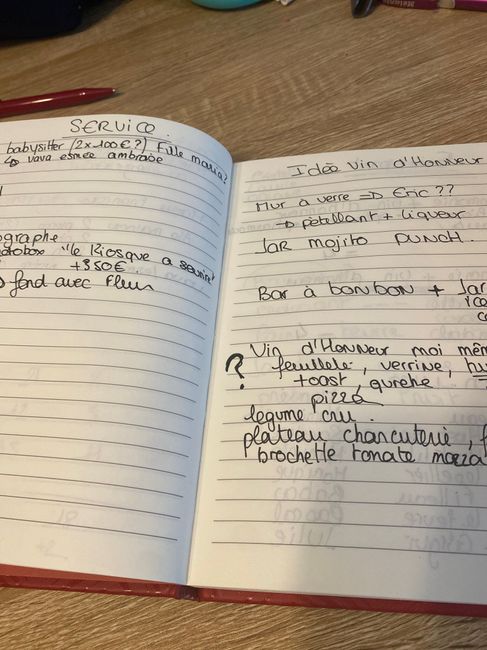 SERVICE
babysitter (2x100€?) Fille maria?
↳ vava esmee ambrabe
ographe
otobox "le Kiosque a sourire"
+350€
fond avec Fleur
Idée Vin d'Honneur
Mur à verre => Eric ??
-> petellant + liqueur
Jar mojito PUNCH.
Bar à bonbon + Jar
Vin d'Honneur moi mêm
? feuilleté, verrine, hu
toast, qurehe
pizza
legume cru.
plateau charcuterie, f
brochette tomate mozza